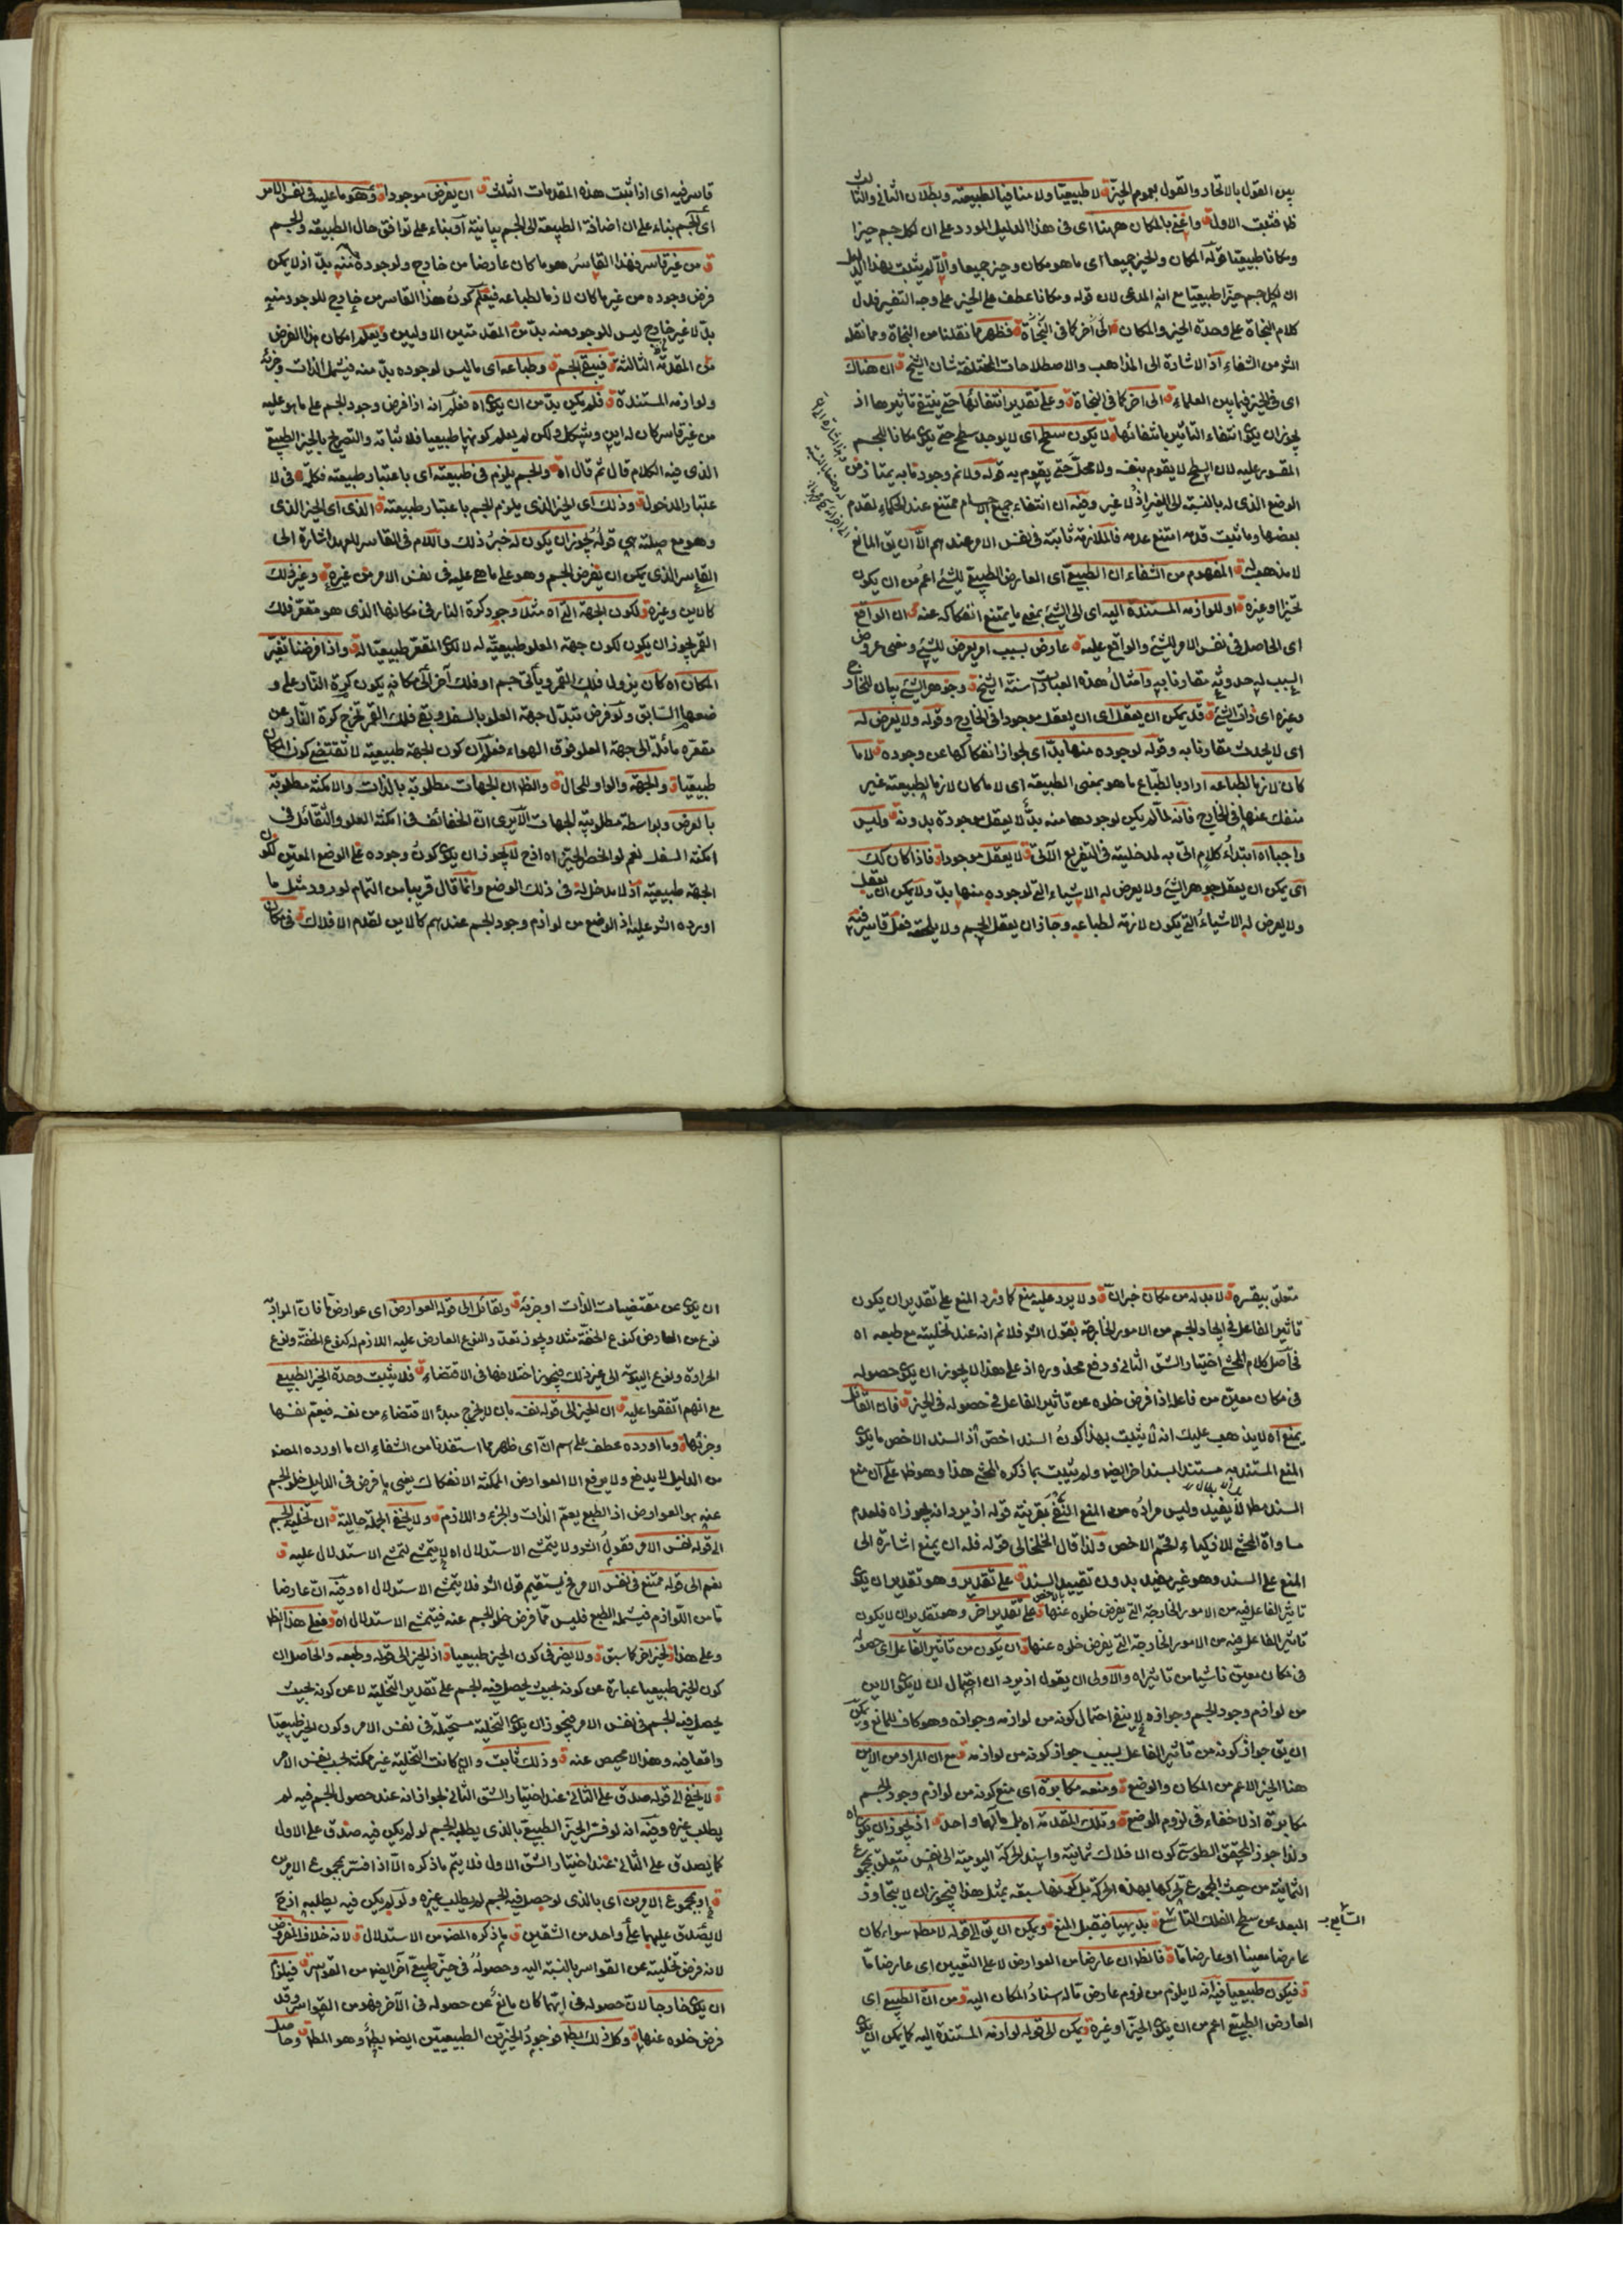 بين القول بالاتحاد والقول بعموم الحيز ق لا طبيعيا ولا منافيا لطبيعته وبطلان الثاني والثالث
ظ فتعين الاول ق واعني بالمكان ههنا اى فى هذا الدليل المورد على ان لكل جسم حيزا
ومكانا طبيعيا قوله المكان والحيز جميعا اى ما هو مكان وحيز جميعا والا لم يثبت بهذا الدليل
ان لكل جسم حيزا طبيعيا مع انه المدعى لان قوله ومكانا عطف على الحيز على وجه التفسير فدل
كلام النجاة على وحدة الحيز والمكان ق الى اخر كما فى النجاة ق فظهر مما نقلنا من النجاة ومما نقله
الش من الشفاء اذ الاشارة الى المذاهب والاصطلاحات المختلفة شان الشيخ ق ان هناك
اى فى الحيز فيما بين العلماء ق الى اخر كما فى النجاة ق وعلى تقدير انتفائها حتى ينتفى تاثيرها اذ
يجوز ان يكون انتفاء التاثير بانتفائها ق لا يكون سطح اى لا يوجد سطح حتى يكون مكانا للجسم
المقسور عليه لان السطح لا يقوم بنفسه ولا محل حتى يقوم به قوله ولا ثم وجود ما به يمتاز فى
الوضع الذى له بالنسبة الى الغير اذ لا غير وفيه ان انتفاء جميع الاجسام ممتنع عند الحكماء لقدم
بعضها وما ثبت قدمه امتنع عدمه فالملازمة ثابتة فى نفس الامر عندهم الا ان يق المانع
لا مذهب له ق المفهوم من الشفاء ان الطبيعى اى العارض الطبيعى للشئ اعم من ان يكون
تحيزا وغيره ق او للوازمه المستندة اليه اى الى الشئ بمعنى ما يمتنع انفكاكه عنه ق ان الواقع
اى الحاصل فى نفس الامر للشئ والواقع عليه ق عارض بسبب امر يعرض للشئ ومعنى عروض
السبب له حدوثه مقارنا به وامثال هذه العبارات سنة الشيخ ق وجوهر الشئ بيان للخارج
وغيره اى ذات الشئ ق قد يمكن ان يعقل اى ان يعقل موجودا فى الخارج وقوله ولا يعرض له
اى لا يحدث مقارنا به وقوله لوجوده منها بد اى لجواز انفكاكها عن وجوده ق لا ما
كان لازما لطباعه اراد بالطباع ما هو بمعنى الطبيعة اى لا ما كان لازما لطبيعته غير
منفك عنها فى الخارج فانه لما لم يكن لوجودها منه بد لا يعقل موجودة بدونه ق وليس
واجبا اه ابتداء كلام اتى به لمدخليته فى التفريع الآتى ق لا يعقل موجودا ق فاذا كان كك
اى يمكن ان يعقل جوهر الشئ ولا يعرض له الاشياء التى لوجوده منها بد ولا يمكن ان يعقل
ولا يعرض له الاشياء التى يكون لازمة لطباعه وجاز ان يعقل الجسم ولا يلحقه فعل قاسر فيه
قاسر فيه اى اذا ثبت هذه المقدمات الثلث ق ان يفرض موجودا ق وهو ما عليه فى نفس الامر
اى الجسم بناء على ان اضافة الطبيعة الى الجسم بيانية او بناء على توافق حال الطبيعة والجسم
ق من غير قاسر فهذا القاسر هو ما كان عارضا من خارج ولوجوده منه بد اذ لا يمكن
فرض وجوده من غير ما كان لازما لطباعه فيعلم كون هذا القاسر من خارج للوجود منه
بد لا غير خارج ليس للوجود منه بد من المقدمتين الاوليين ويعلم امكان هذا الفرض
من المقدمة الثالثة ق فيبقى الجسم ق وطباعه اى ما ليس لوجوده بد منه فيشمل الذات وجزئه
ولوازمه المستندة ق فلم يكن بد من ان يكون اه فعلم انه اذا فرض وجود الجسم على ما هو عليه
من غير قاسر كان له اين وشكل ولكن لم يعلم كونهما طبيعيا فلاثباته والتصريح بالحيز الطبيعى
الذى فيه الكلام قال ثم قال اه ق والجسم يلزم فى طبيعته اى باعتبار طبيعته فكلمة فى لا
عتبار المدخول ق وذلك اى الحيز الذى يلزم الجسم باعتبار طبيعته ق الذى اى الحيز الذى
وهو مع صلته هى قوله يجوز ان يكون له خبر ذلك واللام فى القاسر للعهد اشارة الى
القاسر الذى يمكن ان يفرض الجسم وهو على ما هى عليه فى نفس الامر من غيره ق وغير ذلك
كالاين وغيره ق لكون الجهة التى اه مثلا وجود كرة النار فى مكانها الذى هو مقعر فلك
القمر يجوز ان يكون لكون جهة العلو طبيعية له لا لكون المقعر طبيعيا له ق واذا فرضنا تغير
المكان اه كان يزول فلك القمر ويأتى جسم او فلك آخر الى مكانه يكون كرة النار على و
ضعها السابق ولو فرض تبدل جهة العلو بالسفل وبقى فلك القمر تخرج كرة النار عن
مقعره مائلة الى جهة العلو فوق الهواء فعلم ان كون الجهة طبيعية لا تقتضى كون المكان
طبيعيا ق والجهة والواو للحال ق والظ ان الجهات مطلوبة بالذات والامكنة مطلوبة
بالعرض وبواسطة مطلوبية الجهات الا يرى ان الخفائف فى امكنة العلو والثقائل فى
امكنة السفل نعم لو الخص الحيز اه اذح لا يجوز ان يكون كون وجوده على الوضع المعين لكون
الجهة طبيعية اذ لا مدخل له فى ذلك الوضع وانما قال قريبا من التمام لورود مثل ما
اورده الش عليه اذ الوضع من لوازم وجود الجسم عندهم كالاين لقدم الافلاك ق فى مكان
متعلق بيقسره ق لا بد له من مكان خبر ان ق ولا يرد عليه منع كما ورد المنع على تقدير ان يكون
تأثير الفاعل فى ايجاد الجسم من الامور الخارجة بقول الش فلا ثم انه عند تخليته مع طبعه اه
فحاصل كلام المحشى اختيار الشق الثانى ودفع محذوره اذ على هذا لا يجوز ان يكون حصوله
فى مكان معين من فاعل اذا فرض خلوه عن تأثير الفاعل فى حصوله فى الحيز ق فان القائل
يمنع اه لا يذهب عليك انه لا يثبت بهذا كون السند اخص اذ السند الاخص ما يكون
المنع المستند به مستندا بسند اخر ايضا ولم يثبت بما ذكره المحشى هذا وهو ظ على ان منع
السند مط لا يفيد وليس مراده من المنع النفى بقرينة قوله اذ يرد انه يجوز اه فلعدم
مساواة المحشى للاذكياء لختم الاخص ولذا قال الخلخالى قوله فله ان يمنع اشارة الى
المنع على السند وهو غير مفيد بدون تقييد السند ق على تقدير وهو تقدير ان يكون
تاثر الفاعل فيه من الامور الخارجة التى يفرض خلوه عنها ق على تقدير اخر وهو تقدير ان لا يكون
تاثير الفاعل فيه من الامور الخارجة التى يفرض خلوه عنها ق ان يكون من تاثير الفاعل اى حصوله
فى مكان معين ناشيا من تاثيره اه والاولى ان يقول اذ يرد ان احتمال ان لا يكون الاين
من لوازم وجود الجسم وجوازه لا ينفى احتمال كونه من لوازمه وجوازه وهو كاف للمانع ويمكن
ان يق جواز كونه من تاثير الفاعل بسبب جواز كونه من لوازمه ق مع ان المراد من الاين
هنا الحيز الاعم من المكان والوضع ق ومنعه مكابرة اى منع كونه من لوازم وجود الجسم
مكابرة اذ لا خفاء فى لزوم الوضع ق وتلك المقدمة اه بل مآلهما واحد ق اذ يجوز ان يكون اه
ولذا جوز المحقق الطوسى كون الافلاك ثمانية واسند الحركة اليومية الى نفس متعلق بمجموع
الثمانية من حيث المجموع تحركها بهذه الحركة بل كونها سبعة بمثل هذا فيجوز ان لا يتجاوز
البعد عن سطح الفلك التاسع ق بديهيا فيقبل المنع ق ويمكن ان يق الى قوله لا مط سواء كان
التاسع
عارضا معينا او عارضا ما ق فالظ ان عارضا من العوارض لا على التعيين اى عارضا ما
ق فيكون طبيعيا فيه انه لا يلزم من لزوم عارض ما له اسناد المكان اليه ق ومن ان الطبيعى اى
العارض الطبيعى اعم من ان يكون الحيز او غيره ق ويمكن الى قوله لوازمه المستندة اليه كما يمكن ان يكون
ان يكون من مقتضيات الذات او جزئه ق ولقائل الى قوله العوارض اى عوارض ما فان المراد
نوع من العارض كنوع الخفة مثلا ويجوز تعدد والنوع العارض عليه اللازم له كنوع الخفة ونوع
الحرارة ونوع اليبوسة الى غير ذلك فيجوز اختلافها فى الاقتضاء ق فلا يثبت وحدة الحيز الطبيعى
مع انهم اتفقوا عليه ق ان الحيز الى قوله نفسه بان لا يخرج مبدأ الاقتضاء من نفسه فيعم نفسها
وجزئها ق وما اورده عطف على اسم ان اى ظهر مما استفدنا من الشفاء ان ما اورده المصنف
من الدليل لا يدفع ولا يرفع الا العوارض الممكنة الانفكاك يعنى ما فرض فى الدليل خلو الجسم
عنه هو العوارض اذ الطبع يعم الذات والجزء واللازم ق ولا يخفى الجملة حالية ق ان تخلية الجسم
الى قوله نفس الامر فقول الش ولا يتمشى الاستدلال اه لا يتمشى لتمشى الاستدلال عليه ق
نعم الى قوله ممتنع فى نفس الامر فح يستقيم قول الش فلا يتمشى الاستدلال اه وفيه ان عارضا
ما من اللوازم فيشمله الطبع فليس مما فرض خلو الجسم عنه فيتمشى الاستدلال اه ق فعلى هذا الظ
وعلى هذا ق لحيز اخر كما سبق ق ولا يضر فى كون الحيز طبيعيا ق اذ الحيز الى قوله وطبعه والحاصل ان
كون الحيز طبيعيا عبارة عن كونه بحيث يحصل فيه الجسم على تقدير التخلية لا عن كونه بحيث
يحصل فيه الجسم فى نفس الامر فيجوز ان يكون التخلية مستحيلة فى نفس الامر وكون الحيز طبيعيا
واقعا فيه وهذا لا محيص عنه ق وذلك ثابت وان كانت التخلية غير ممكنة بحسب نفس الامر
ق لا يخفى الى قوله صدق على الثانى عند اختيار الشق الثانى لجواز انه عند حصول الجسم فيه لم
يطلب غيره وفيه انه لو فسر الحيز الطبيعى بالذى يطلبه الجسم لو لم يكن فيه صدق على الاول
كما يصدق على الثانى عند اختيار الشق الاول فلا يتم ما ذكره الا اذا فسر بمجموع الامرين
ق او بمجموع الامرين اى بالذى لو حصل فيه الجسم لم يطلب غيره ولو لم يكن فيه يطلبه اذح
لا يصدق عليهما على واحد من الشقين ق ما ذكره المصنف من الاستدلال ق لانه خلاف المفروض
لانه فرض تخليته عن القواسر بالنسبة اليه وحصوله فى حيز طبيعى آخر ايضا من القواسر ق فيلزم
ان يكون خارجا لان حصوله فى ايهما كان مانع عن حصوله فى الآخر فهو من القواسر وقد
فرض خلوه عنها ق وكل ذلك بط فوجود الحيزين الطبيعيين ايضا بط وهو المط ق وحاصل